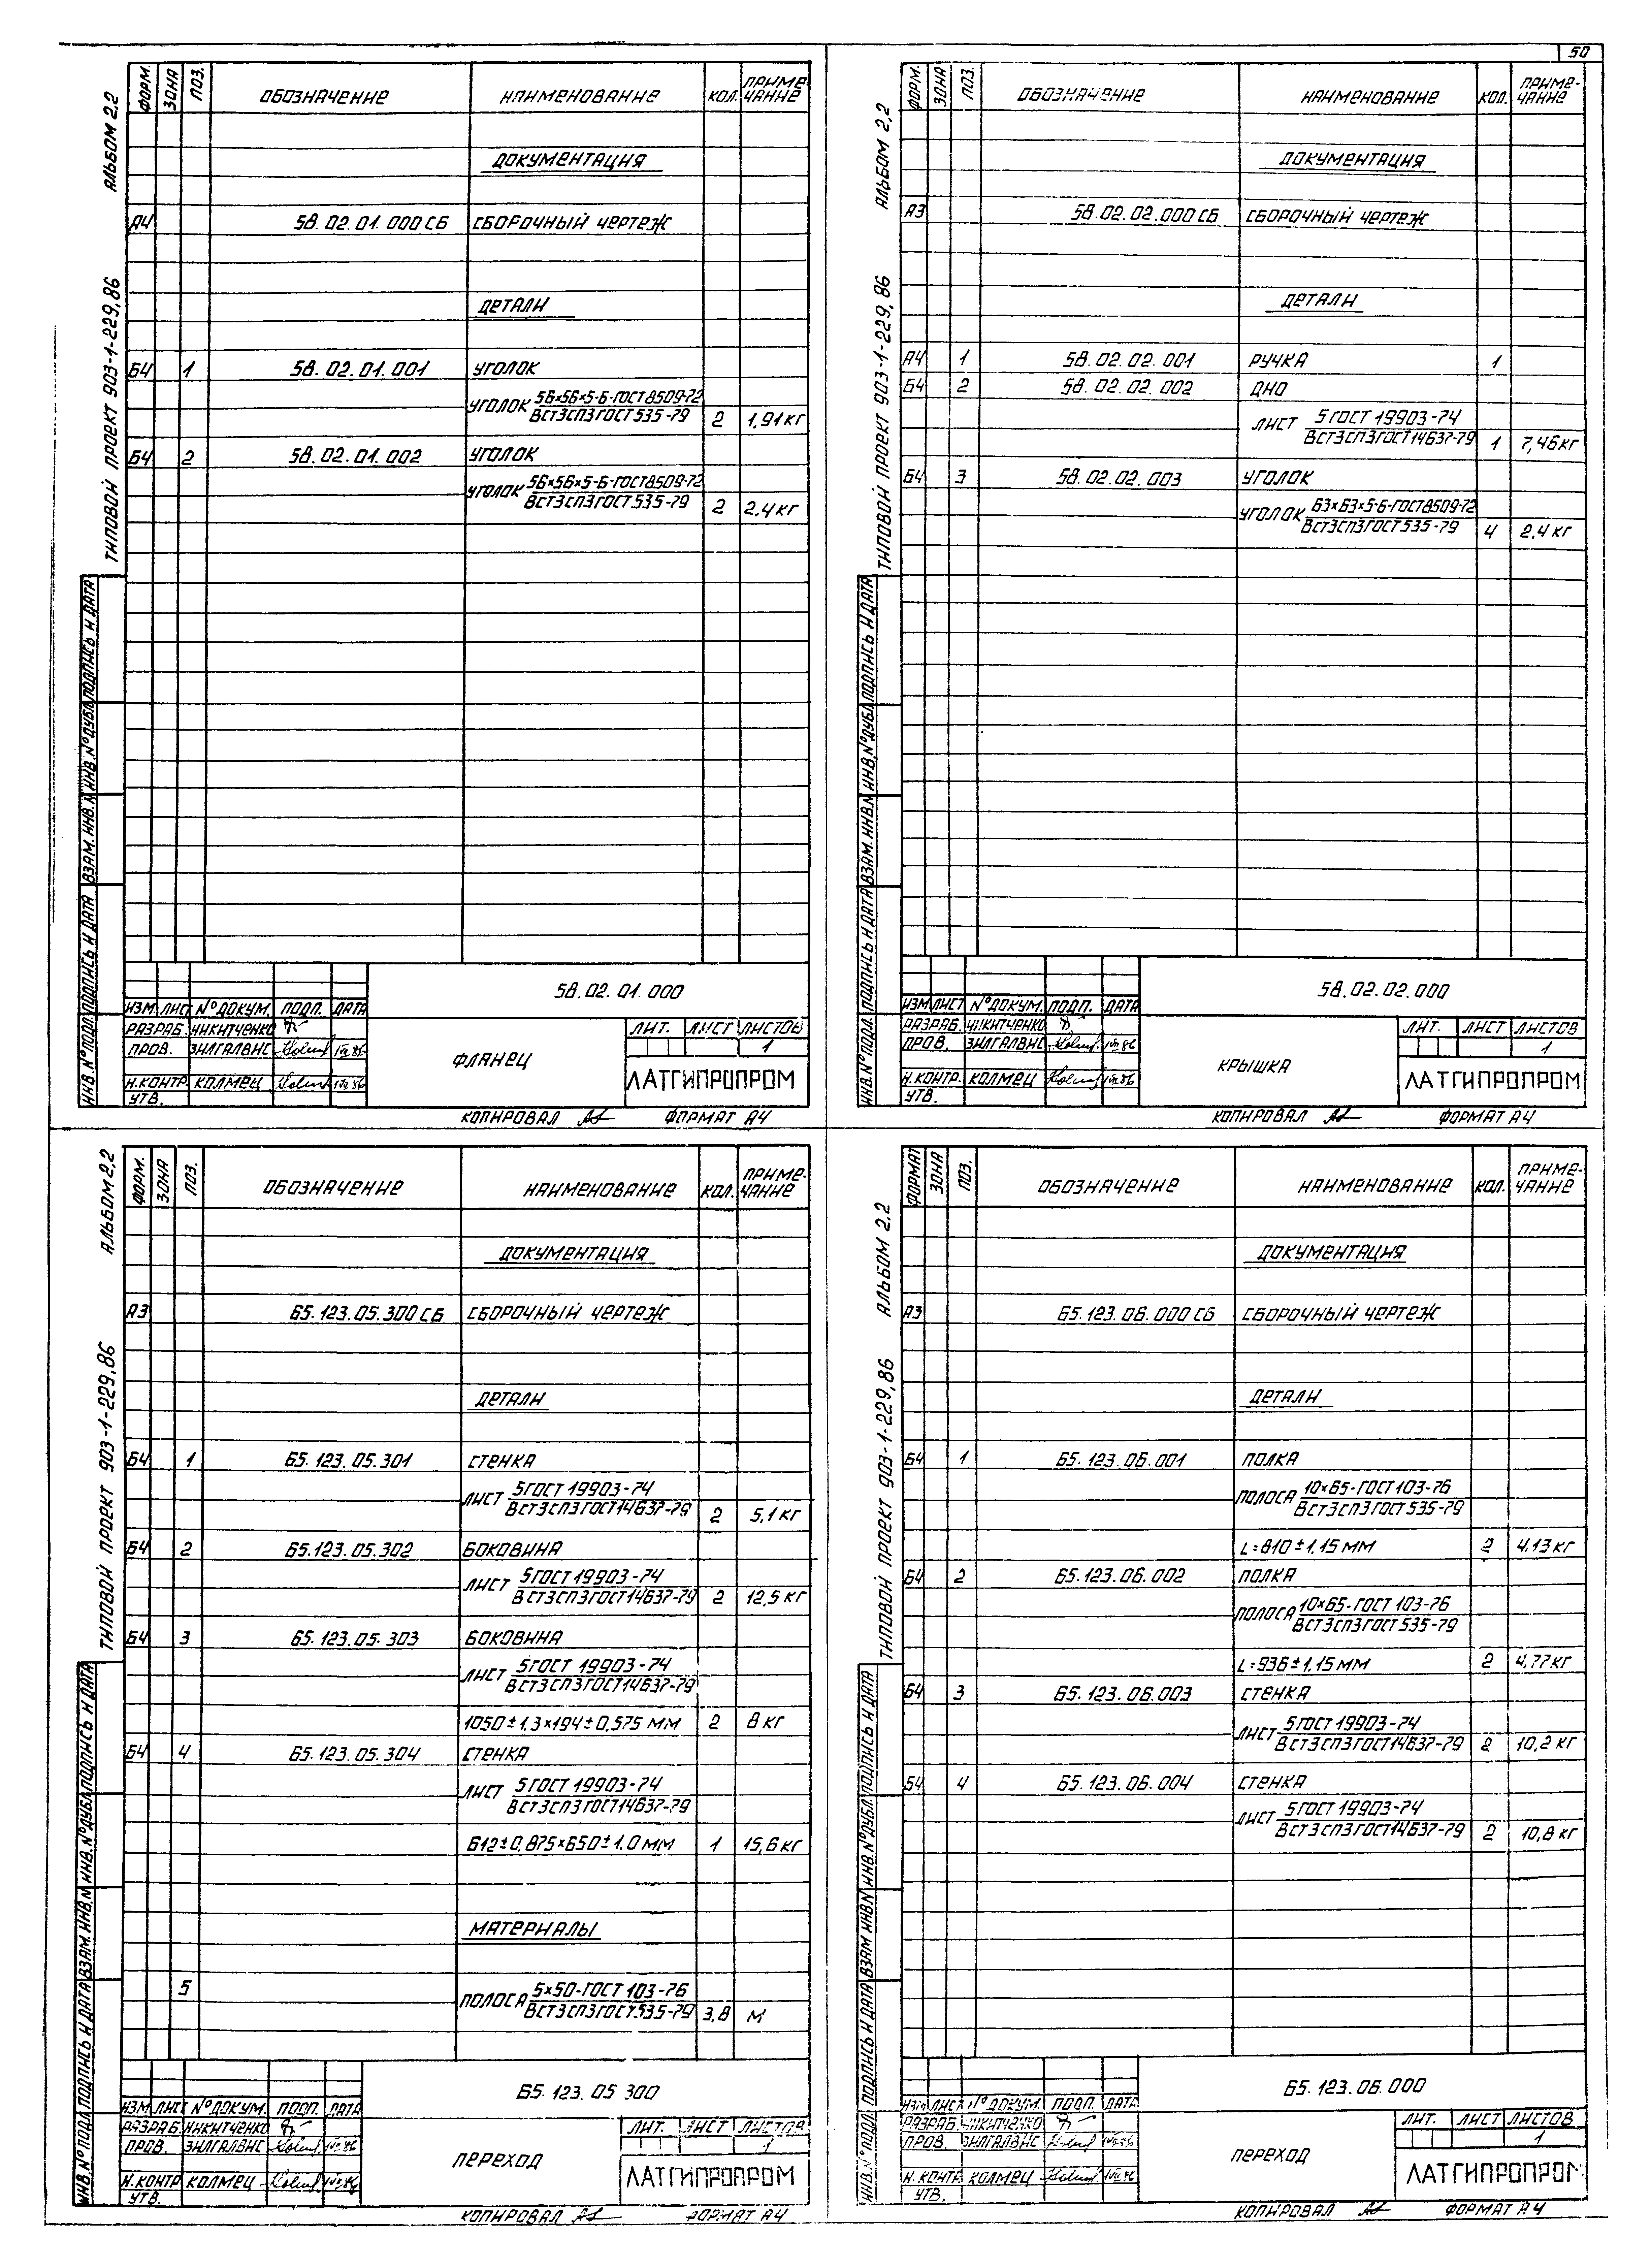 50
АЛЬБОМ 2.2
ТИПОВОЙ ПРОЕКТ 903-1-229.86
ФОРМ. ЗОНА ПОЗ. ОБОЗНАЧЕНИЕ НАИМЕНОВАНИЕ КОЛ. ПРИМЕ-
ЧАНИЕ
ДОКУМЕНТАЦИЯ
А4 58.02.01.000 СБ СБОРОЧНЫЙ ЧЕРТЕЖ
ДЕТАЛИ
Б4 1 58.02.01.001 УГОЛОК
УГОЛОК 56×56×5-Б-ГОСТ 8509-72
ВСТ3СП3 ГОСТ 535-79 2 1,91 КГ
Б4 2 58.02.01.002 УГОЛОК
УГОЛОК 56×56×5-Б-ГОСТ 8509-72
ВСТ3СП3 ГОСТ 535-79 2 2,4 КГ
ИНВ.№ПОДЛ. ПОДПИСЬ И ДАТА ВЗАМ. ИНВ. № ИНВ.№ДУБЛ. ПОДПИСЬ И ДАТА
58.02.01.000
ИЗМ. ЛИСТ №ДОКУМ. ПОДП. ДАТА
РАЗРАБ. НИКИТЧЕНКО
ПРОВ. ЗИЛГАЛВИС
Н.КОНТР. КОЛМЕЦ
УТВ.
ФЛАНЕЦ
ЛИТ. ЛИСТ ЛИСТОВ
1
ЛАТГИПРОПРОМ
КОПИРОВАЛ ФОРМАТ А4
АЛЬБОМ 2.2
ТИПОВОЙ ПРОЕКТ 903-1-229.86
ФОРМ. ЗОНА ПОЗ. ОБОЗНАЧЕНИЕ НАИМЕНОВАНИЕ КОЛ. ПРИМЕ-
ЧАНИЕ
ДОКУМЕНТАЦИЯ
А3 58.02.02.000 СБ СБОРОЧНЫЙ ЧЕРТЕЖ
ДЕТАЛИ
А4 1 58.02.02.001 РУЧКА 1
Б4 2 58.02.02.002 ДНО
ЛИСТ 5 ГОСТ 19903-74
ВСТ3СП3 ГОСТ 14637-79 1 7,46 КГ
Б4 3 58.02.02.003 УГОЛОК
УГОЛОК 63×63×5-Б-ГОСТ 8509-72
ВСТ3СП3 ГОСТ 535-79 4 2.4 КГ
ИНВ.№ПОДЛ. ПОДПИСЬ И ДАТА ВЗАМ. ИНВ.№ ИНВ.№ДУБЛ. ПОДПИСЬ И ДАТА
58.02.02.000
ИЗМ. ЛИСТ №ДОКУМ. ПОДП. ДАТА
РАЗРАБ. НИКИТЧЕНКО
ПРОВ. ЗИЛГАЛВИС
Н.КОНТР. КОЛМЕЦ
УТВ.
КРЫШКА
ЛИТ. ЛИСТ ЛИСТОВ
1
ЛАТГИПРОПРОМ
КОПИРОВАЛ ФОРМАТ А4
АЛЬБОМ 2.2
ТИПОВОЙ ПРОЕКТ 903-1-229.86
ФОРМ. ЗОНА ПОЗ. ОБОЗНАЧЕНИЕ НАИМЕНОВАНИЕ КОЛ. ПРИМЕ-
ЧАНИЕ
ДОКУМЕНТАЦИЯ
А3 Б5.123.05.300 СБ СБОРОЧНЫЙ ЧЕРТЕЖ
ДЕТАЛИ
Б4 1 Б5.123.05.301 СТЕНКА
ЛИСТ 5 ГОСТ 19903-74
ВСТ3СП3 ГОСТ 14637-79 2 5,1 КГ
Б4 2 Б5.123.05.302 БОКОВИНА
ЛИСТ 5 ГОСТ 19903-74
ВСТ3СП3 ГОСТ 14637-79 2 12,5 КГ
Б4 3 Б5.123.05.303 БОКОВИНА
ЛИСТ 5 ГОСТ 19903-74
ВСТ3СП3 ГОСТ 14637-79
1050±1,3×194±0,575 ММ 2 8 КГ
Б4 4 Б5.123.05.304 СТЕНКА
ЛИСТ 5 ГОСТ 19903-74
ВСТ3СП3 ГОСТ 14637-79
612±0,875×650±1.0 ММ 1 15,6 КГ
МАТЕРИАЛЫ
5 ПОЛОСА 5×50-ГОСТ 103-76
ВСТ3СП3 ГОСТ 535-79 3,8 М
ИНВ.№ПОДЛ. ПОДПИСЬ И ДАТА ВЗАМ. ИНВ.№ ИНВ.№ДУБЛ. ПОДПИСЬ И ДАТА
Б5.123.05 300
ИЗМ. ЛИСТ №ДОКУМ. ПОДП. ДАТА
РАЗРАБ. НИКИТЧЕНКО
ПРОВ. ЗИЛГАЛВИС
Н.КОНТР. КОЛМЕЦ
УТВ.
ПЕРЕХОД
ЛИТ. ЛИСТ ЛИСТОВ
1
ЛАТГИПРОПРОМ
КОПИРОВАЛ ФОРМАТ А4
АЛЬБОМ 2.2
ТИПОВОЙ ПРОЕКТ 903-1-229.86
ФОРМАТ ЗОНА ПОЗ. ОБОЗНАЧЕНИЕ НАИМЕНОВАНИЕ КОЛ. ПРИМЕ-
ЧАНИЕ
ДОКУМЕНТАЦИЯ
А3 Б5.123.06.000 СБ СБОРОЧНЫЙ ЧЕРТЕЖ
ДЕТАЛИ
Б4 1 Б5.123.06.001 ПОЛКА
ПОЛОСА 10×65-ГОСТ 103-76
ВСТ3СП3 ГОСТ 535-79
L=810±1,15 ММ 2 4,13 КГ
Б4 2 Б5.123.06.002 ПОЛКА
ПОЛОСА 10×65-ГОСТ 103-76
ВСТ3СП3 ГОСТ 535-79
L=936±1,15 ММ 2 4,77 КГ
Б4 3 Б5.123.06.003 СТЕНКА
ЛИСТ 5 ГОСТ 19903-74
ВСТ3СП3 ГОСТ 14637-79 2 10,2 КГ
Б4 4 Б5.123.06.004 СТЕНКА
ЛИСТ 5 ГОСТ 19903-74
ВСТ3СП3 ГОСТ 14637-79 2 10,8 КГ
ИНВ.№ПОДЛ. ПОДПИСЬ И ДАТА ВЗАМ ИНВ.№ ИНВ.№ДУБЛ. ПОДПИСЬ И ДАТА
Б5.123.06.000
ИЗМ. ЛИСТ №ДОКУМ. ПОДП. ДАТА
РАЗРАБ. НИКИТЧЕНКО
ПРОВ. ЗИЛГАЛВИС
Н.КОНТР. КОЛМЕЦ
УТВ.
ПЕРЕХОД
ЛИТ. ЛИСТ ЛИСТОВ
1
ЛАТГИПРОПРОМ
КОПИРОВАЛ ФОРМАТ А4